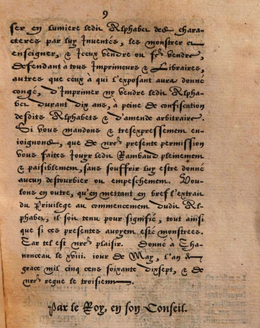 9
ser en lumiere ledit Alphabet des chara-
cteres par luy inventés, les monstrer et
enseigner, & iceux vendre ou fre vendre,
defendant a tous Imprimeurs & Libraires,
autres que ceux à qui l'exposant aura donné
congé, d'Imprimer ny vendre ledit Alpha-
bet durant dix ans, à peine de confiscation
desdits Alphabets & d'amende arbitraire.
Si vous mandons & tresexpressement en-
ioignons, que de nostre presente permission
vous faites jouyr ledit Rambaud pleinement
& paisiblement, sans souffrir luy estre donné
aucun destourbier ou empeschement. Vou-
lons en outre, qu'en mettant en bref l'extrait
du Privilege au commencement dudit Al-
phabet, il soit tenu pour signifié, tout ainsi
que si ces presentes avoyent esté monstrees.
Car tel est nostre plaisir. Donné à Cha-
nonceau le xviii. jour de May, l'an de
grace mil cinq cens soixante dixsept, & de
nostre regne le troisiesme.
Par le Roy, en son Conseil.